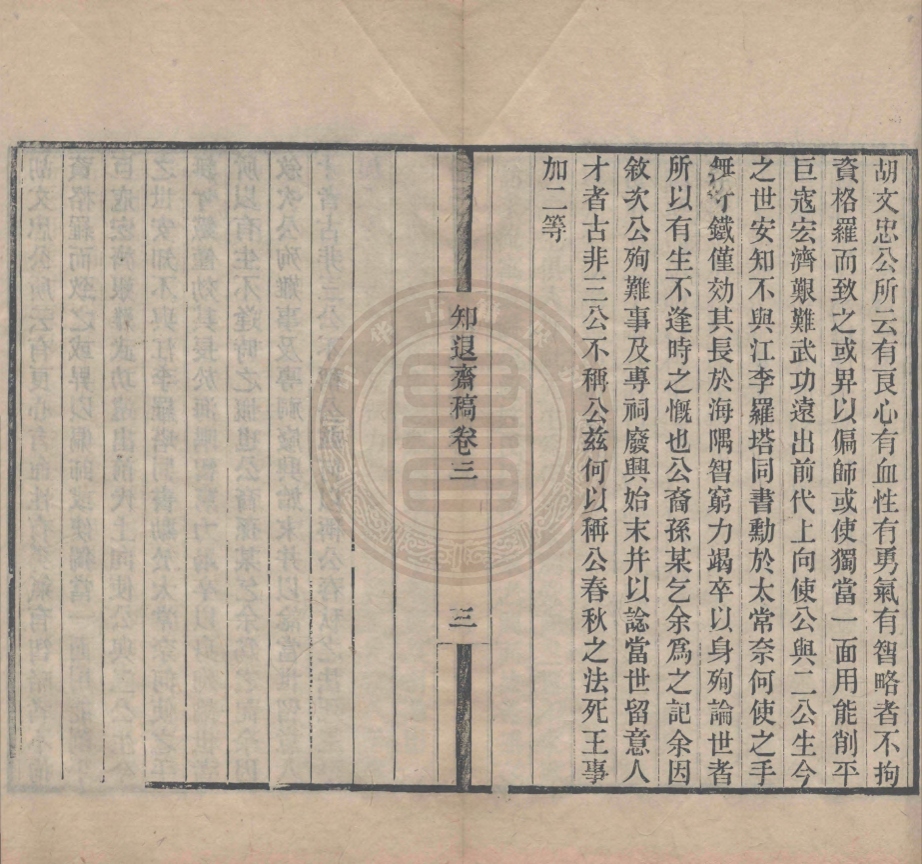 胡文忠公所云有良心有血性有勇氣有智略者不拘
資格羅而致之或畀以偏師或使獨當一面用能削平
巨寇宏濟艱難武功遠出前代上向使公與二公生今
之世安知不與江李羅塔同書勳於太常奈何使之手
無寸鐵僅効其長於海隅智窮力竭卒以身殉論世者
所以有生不逢時之慨也公裔孫某乞余爲之記余因
敘次公殉難事及專祠廢興始末并以諗當世留意人
才者古非三公不稱公茲何以稱公春秋之法死王事
加二等
知退齋稿卷三
三